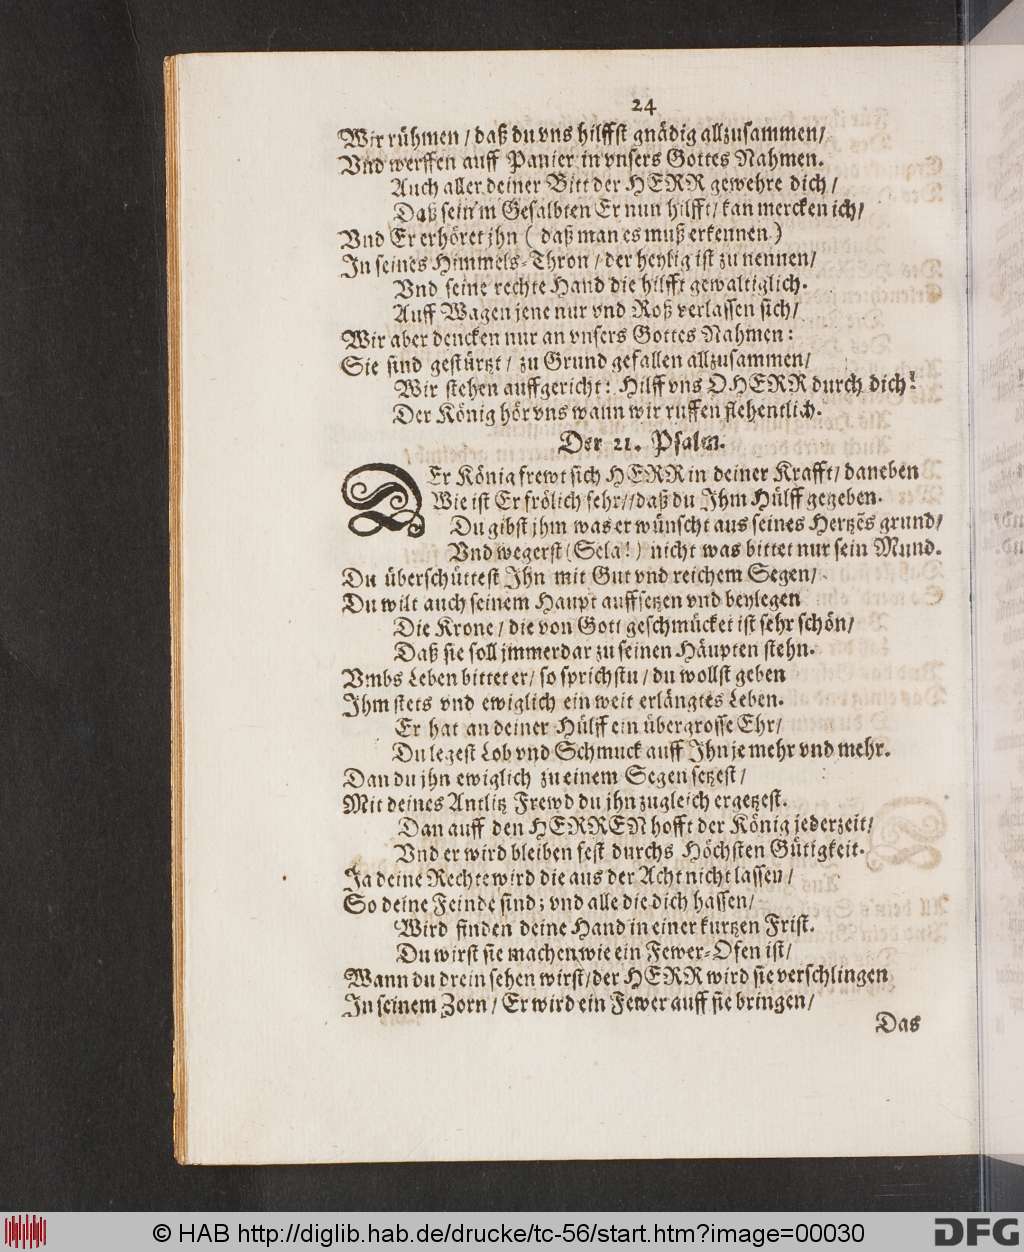 24
Wir rühmen / daß du vns hilffst gnädig allzusammen /
Vnd werffen auff Panier in vnsers Gottes Nahmen.
Auch aller deiner Bitt der HERR gewehre dich /
Daß sein'm Gesalbten Er nun hilfft / kan mercken ich /
Vnd Er erhöret jhn ( daß man es muß erkennen )
In seines Himmels-Thron / der heylig ist zu nennen /
Vnd seine rechte Hand die hilfft gewaltiglich.
Auff Wagen jene nur vnd Roß verlassen sich /
Wir aber dencken nur an vnsers Gottes Nahmen:
Sie sind gestürtzt / zu Grund gefallen allzusammen /
Wir stehen auffgericht: Hilff vns O HERR durch dich!
Der König hör vns wann wir ruffen flehentlich.
Der 21. Psalm.
DEr König frewt sich HERR in deiner Krafft / daneben
Wie ist Er frölich sehr / / daß du Ihm Hülff gegeben.
Du gibst jhm was er wünscht aus seines Hertzẽs grund /
Vnd wegerst (Sela!) nicht was bittet nur sein Mund.
Du überschüttest Ihn mit Gut vnd reichem Segen /
Du wilt auch seinem Haupt auffsetzen vnd beylegen
Die Krone / die von Gott geschmücket ist sehr schön /
Daß sie soll jmmerdar zu seinen Häupten stehn.
Vmbs Leben bittet er / so sprichstu / du wollst geben
Ihm stets vnd ewiglich ein weit erlängtes Leben.
Er hat an deiner Hülff ein übergrosse Ehr /
Du legest Lob vnd Schmuck auff Ihn je mehr vnd mehr.
Dan du jhn ewiglich zu einem Segen setzest /
Mit deines Antlitz Frewd du jhn zugleich ergetzest.
Dan auff den HERREN hofft der König jederzeit /
Vnd er wird bleiben fest durchs Höchsten Gütigkeit.
Ja deine Rechte wird die aus der Acht nicht lassen /
So deine Feinde sind; vnd alle die dich hassen /
Wird finden deine Hand in einer kurtzen Frist.
Du wirst sie machen wie ein Fewer-Ofen ist /
Wann du drein sehen wirst / der HERR wird sie verschlingen
In seinem Zorn / Er wird ein Fewer auff sie bringen /
Das
© HAB http://diglib.hab.de/drucke/tc-56/start.htm?image=00030
DFG